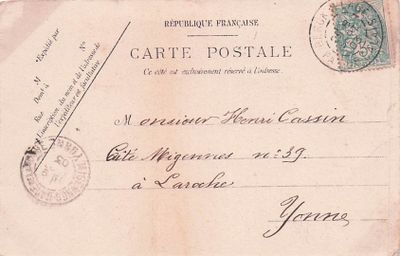 RÉPUBLIQUE FRANÇAISE
CARTE POSTALE
Ce côté est exclusivement réservé à l'adresse.
*Expédié par
M
Demt à
Rue
N°
*L'inscription du nom et de l'adresse de l'expéditeur est facultative.
Monsieur Henri Cassin
Cité Migennes n° 39
à Laroche
Yonne